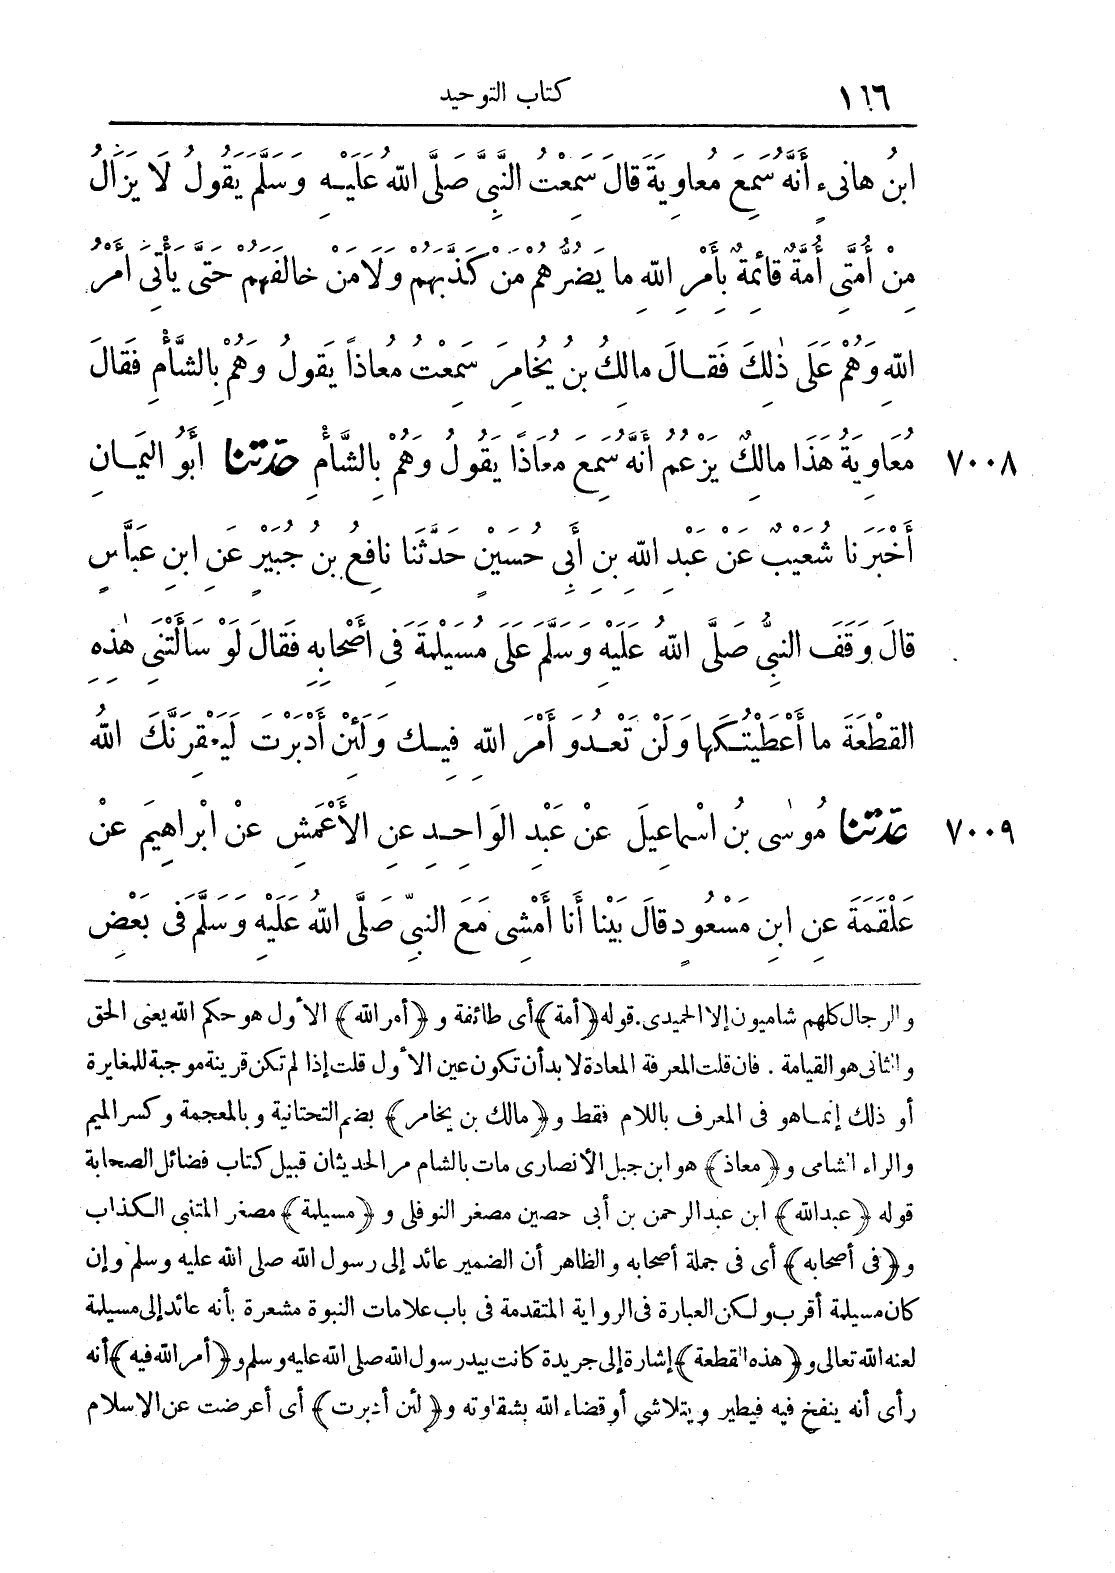 ١٦٦ كتاب التوحيد
ابنُ هانىءٍ أَنَّهُ سَمِعَ مُعاوِيَةَ قالَ سَمِعْتُ النَّبِيَّ صَلَّى اللّٰهُ عَلَيْهِ وَسَلَّمَ يَقُولُ لَا يَزَالُ
مِنْ أُمَّتِى أُمَّةٌ قائِمَةٌ بِأَمْرِ اللّٰهِ ما يَضُرُّهُمْ مَنْ كَذَّبَهُمْ وَلَا مَنْ خالَفَهُمْ حَتَّى يَأْتِىَ أَمْرُ
اللّٰهِ وَهُمْ عَلَى ذٰلِكَ فَقالَ مالِكُ بنُ يُخامِرَ سَمِعْتُ مُعاذاً يَقُولُ وَهُمْ بِالشَّأْمِ فَقالَ
مُعَاوِيَةُ هَذَا مالِكٌ يَزْعُمُ أَنَّهُ سَمِعَ مُعَاذًا يَقُولُ وَهُمْ بِالشَّأْمِ حَدَّثَنَا أَبُو اليَمَانِ ٧٠٠٨
أَخْبَرَنا شُعَيْبٌ عَنْ عَبْدِ اللّٰهِ بنِ أَبِى حُسَيْنٍ حَدَّثَنا نافِعُ بنُ جُبَيْرٍ عَنِ ابنِ عَبَّاسٍ
قالَ وَقَفَ النبىُّ صَلَّى اللّٰهُ عَلَيْهِ وَسَلَّمَ عَلَى مُسَيْلِمَةَ فِى أَصْحابِهِ فَقالَ لَوْ سَأَلْتَنِى هٰذِهِ
القِطْعَةَ ما أَعْطَيْتُكَها وَلَنْ تَعْدُوَ أَمْرَ اللّٰهِ فِيكَ وَلَئِنْ أَدْبَرْتَ لَيَعْقِرَنَّكَ اللّٰهُ
حَدَّثَنَا مُوسٰى بنُ اسْماعِيلَ عنْ عَبْدِ الوَاحِدِ عنِ الأَعْمَشِ عنْ ابْراهِيمَ عنْ ٧٠٠٩
عَلْقَمَةَ عنِ ابنِ مَسْعُودٍ قالَ بَيْنا أَنا أَمْشِى مَعَ النبىِّ صَلَّى اللّٰهُ عَلَيْهِ وَسَلَّمَ فى بَعْضِ
والرجال كلهم شاميون إلا الحميدى. قوله ﴿أمة﴾ أى طائفة و ﴿أمر الله﴾ الأول هو حكم الله يعنى الحق
والثانى هو القيامة . فان قلت المعرفة المعادة لا بد أن تكون عين الأول قلت إذا لم تكن قرينة موجبة للمغايرة
أو ذلك إنما هو فى المعرف باللام فقط و ﴿مالك بن يخامر﴾ بضم التحتانية وبالمعجمة وكسر الميم
والراء الشامى و ﴿معاذ﴾ هو ابن جبل الأنصارى مات بالشام مر الحديثان قبيل كتاب فضائل الصحابة
قوله ﴿عبدالله﴾ ابن عبدالرحمن بن أبى حصين مصغر النوفلى و ﴿مسيلمة﴾ مصغر المتنبى الكذاب
و ﴿فى أصحابه﴾ أى فى جملة أصحابه والظاهر أن الضمير عائد إلى رسول الله صلى الله عليه وسلم وإن
كان مسيلمة أقرب ولكن العبارة فى الرواية المتقدمة فى باب علامات النبوة مشعرة بأنه عائد إلى مسيلمة
لعنه الله تعالى و ﴿هذه القطعة﴾ إشارة إلى جريدة كانت بيد رسول الله صلى الله عليه وسلم و ﴿أمر الله فيه﴾ أنه
رأى أنه ينفخ فيه فيطير ويتلاشي أو قضاء الله بشقاوته و ﴿لئن أدبرت﴾ أى أعرضت عن الاسلام